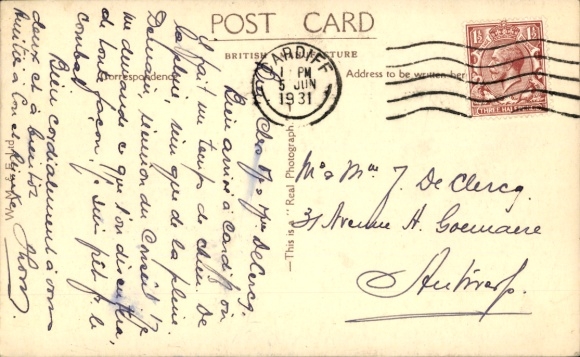 POST CARD
BRITISH MANUFACTURE
Correspondence
Address to be written here
CARDIFF
1 PM
5 JUN
1931
1½ 1½
THREE HALF PENCE
— This is a "Real Photograph"
Chers Mr & Mme De Clercq.
Bien arrivé à Cardiff où
il fait un temps de chien. De
la pluie, rien que de la pluie.
Demain, réunion du Conseil. Je
me demande ce que l'on discutera,
de toute façon, je suis prêt p. le
combat.
Bien cordialement à vous
deux et à bientôt
Mr & Mme J. De Clercq.
31 Avenue A. Goemaere
Antwerp.